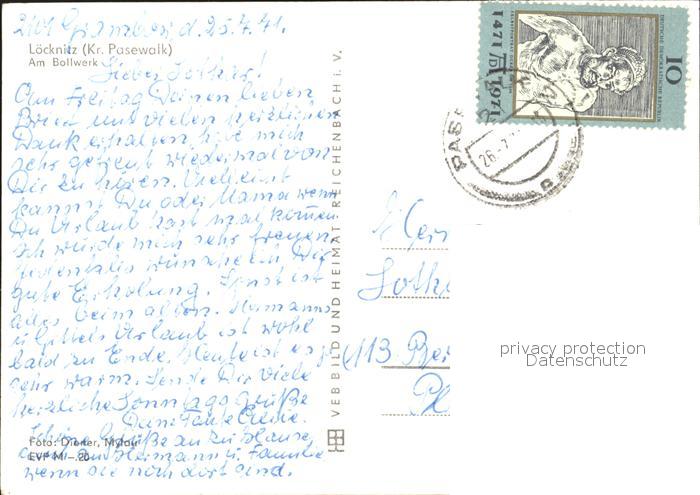 2101 Grambow d. 25.7.71.
Löcknitz (Kr. Pasewalk)
Am Bollwerk
Lieber Lothar!
Am Freitag Deinen lieben
Brief und vielen herzlichen
Dank erhalten, habe mich
sehr gefreut wiedermal von
Dir zu hören. Vielleicht
kannst Du oder Mama wenn
Du Urlaub hast mal kommen.
Ich würde mich sehr freuen.
Jedenfalls wünsche ich Dir
gute Erholung. Sonst ist
alles beim alten. Hermanns
u. Urlaub ist wohl
bald zu Ende. Heute ist es ja
sehr warm. Sende Dir viele
herzliche Sonntagsgrüße
Deine Tante
Schöne Grüße an zu Hause
auch an Hermann u. Familie
wenn sie noch dort sind.
Foto: Diener, Mylau
EVP M -.20
VEB BILD UND HEIMAT REICHENBACH i. V.
DEUTSCHE DEMOKRATISCHE REPUBLIK
10
1471 1971
26.7.
Herr
Loth
113 Ber
Pl
privacy protection
Datenschutz